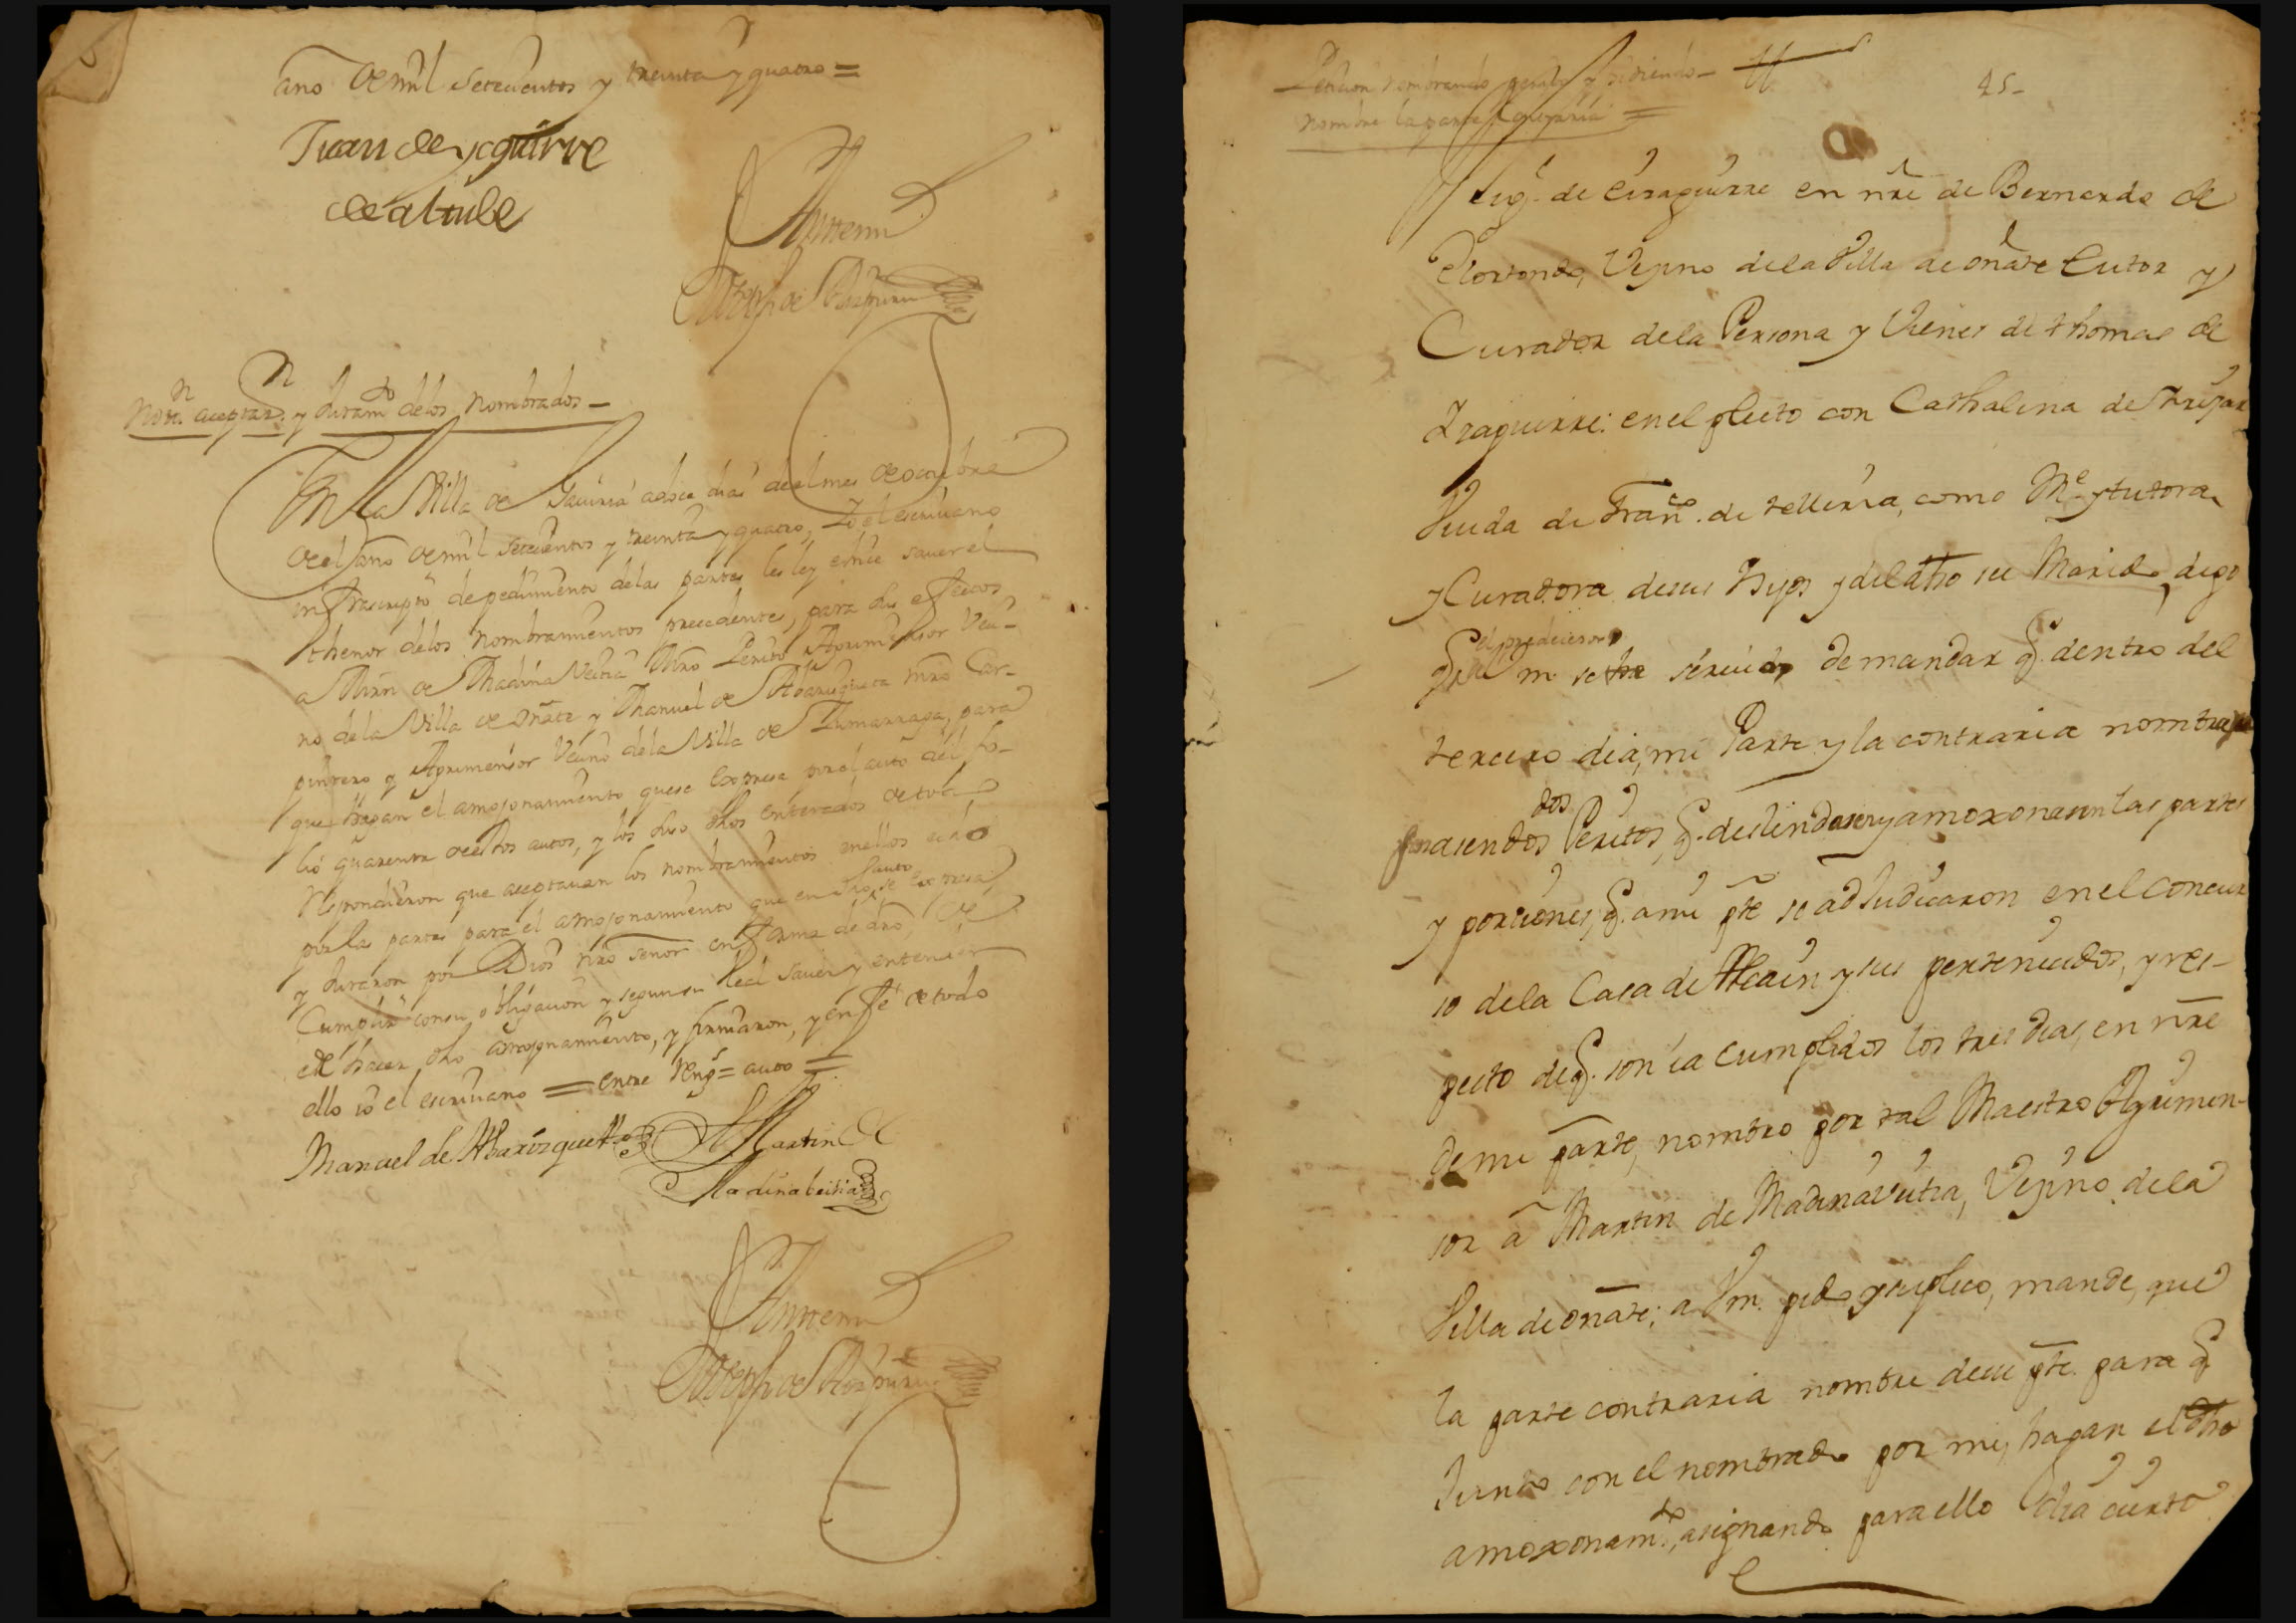 año de mil setecientos y treinta y quatro =
Juan de yguirre
de alçube
Antemi
Joseph de Aizpuru
Notn. aceptazn. y Juramto delos Nombrados —
En La Villa de Gaviria a doce dias de el mes de octubre
de el año de mil setecientos y treinta y quatro, Yo el escrivano
infrascripto de pedimiento delas partes les ley e hice saver el
thenor delos nombramientos precedentes, para sus efectos
a Mrn de Madina Veitia Mro Perito Agrimensor Veci-
no dela Villa de Oñate y Manuel de Abarizqueta mro Car-
pintero y Agrimensor Vecino dela Villa de Zumarraga, para
que hagan el amojonamiento quese Expresa por el auto del fo-
lio quarenta de estos autos, y los dhos enterados de todo
Respondieron que aceptavan los nombramientos en ellos echo
por las partes para el amojonamiento que en dho auto se expresa
y Juraron por Dios nro señor en forma de dro, de
Cumplir con su obligacion y segun su leal saver y entender
de hacer dho amojonamiento, y firmaron, y en fé de todo
ello io el escrivano = entre Reng.s = auto =
Manuel de Abarizqueta Martin de
Madinabeitia
Antemi
Joseph de Aizpuru
Peticion nombrando perito y pidiendo
nombre la parte Contraria =
45-
Mig.l de Eizaguirre en nre de Bernardo de
Elorondo, Vezino dela Villa de oñate tutor y
Curador dela Persona y Vienes de thomas de
Izaguirre: en el pleito con Cathalina de
Viuda de Franco. de telleria, como Me. y tutora
y Curadora desus Hijos y del dho su Marido, digo
el predecesor
q. de Vm se servio demandar q. dentro del
tercero dia, mi Parte y la contraria nombra
dos
Peritos, q. deslindasen y amoxonasen las partes
y porciones, q. a mi pte se adJudicaron en el concur
so dela Casa de Alcain y sus pertenecidos, y res-
pecto de q. son ia cumplidos los tres dias, en nre
demi parte, nombro por tal Maestro Agrimen-
sor â Martin de Madinaveitia, Vezino dela
Villa de oñate; a Vm. pido y suplico, mande, que
la parte contraria nombre desu pte. para q.
Junto con el nombrado por mi, hagan el dho
amoxonamto, asignando para ello dia cierto